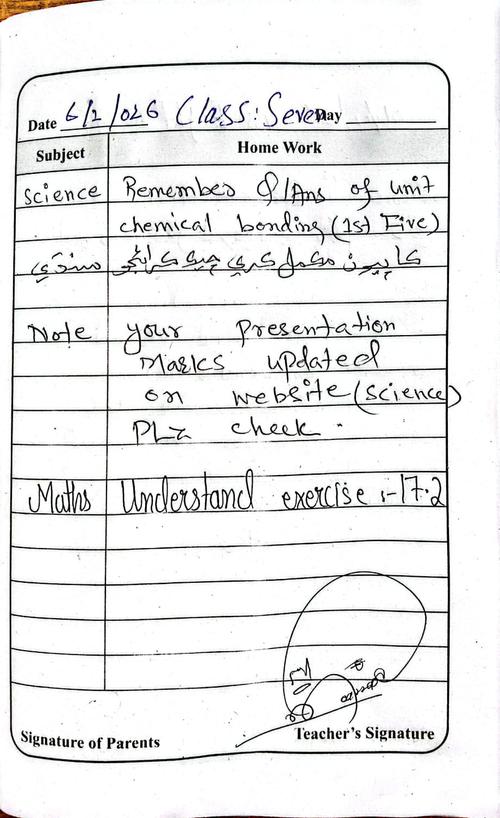 Date 6/2/026 Class: Seven Day
Subject Home Work
Science Remember Q/Ans of unit
chemical bonding (1st Five)
سنڌي ڪاپيون مڪمل ڪري چيڪ ڪرائجو
Note your Presentation
Marks updated
on website (science)
PLz check.
Maths Understand exercise :-17.2
Signature of Parents Teacher's Signature